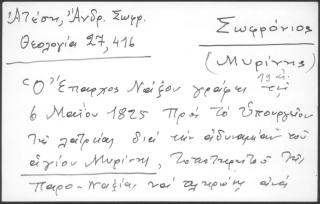 Ἀτέση, Ἀνδρ. Σωφρ.
Θεολογία 27, 416
Σωφρόνιος
(Μυρίνης)
Ὁ Ἔπαρχος Νάξου γράφει τῇ
6 Μαΐου 1825 Πρὸ τὸ Ὑπουργεῖον
τῆς λατρείας διὰ τὴν ἀδυναμίαν τοῦ
ἁγίου Μυρίνης, Τοποτηρητοῦ τῆς
Παρο-Ναξίας καὶ